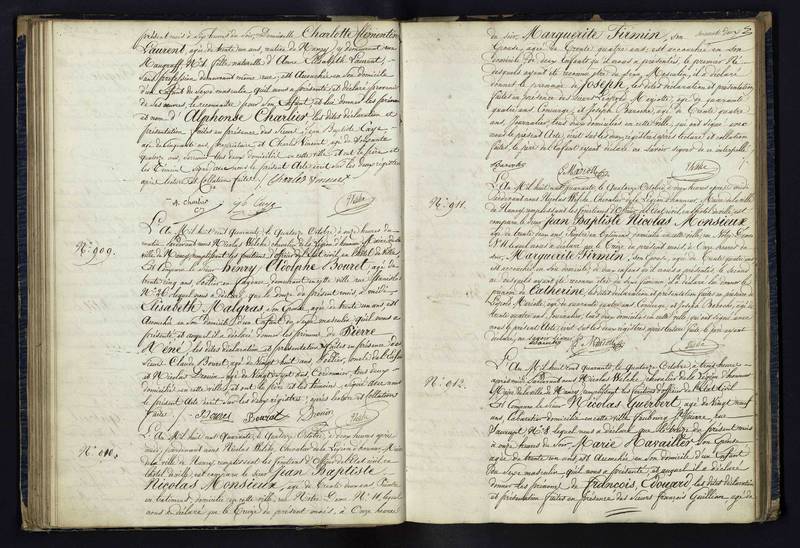 présent mois à onze heures du soir, Demoiselle Charlotte Clémentine
Laurent, âgée de trente un ans, native de Nancy, y demeurant rue
Naturelle d'Anne Elisabeth Laurent,
Sans profession demeurant même rue, est Accouchée en son domicile
d'un Enfant du Sexe masculin, qu'il nous a présenté et déclaré provenir
de ses œuvres, le reconnaître pour son Enfant, et lui donner les prénoms
et nom d'Alphonse Charlier les dites déclaration et
présentation faites en présence des Sieurs Jean Baptiste Caye
âgé de cinquante ans, propriétaire et Charles Vincent âgé de soixante
quatre ans, tous deux domiciliés en cette ville, et ont le père et
les témoins, signé avec nous le présent Acte écrit sur les deux registres
après lecture et Collation faites.
A. Charlier
Caye
N.º 909.
L'An Mil huit cent Quarante, le Quatorze Octobre, à onze heures du
matin, Pardevant nous Nicolas Welche, chevalier de la Légion d'honneur, Maire de la
ville de Nancy, remplissant les fonctions d'officier de l'état civil, en l'hôtel de ville,
Est Comparu le Sieur Henry Adolphe Bouret, âgé de
trente cinq ans, demeurant en cette ville rue Stanislas
N.º lequel nous a déclaré que le douze du présent mois à midi
Elisabeth Malgras, son Epouse, âgée de trente un ans est
Accouchée en son domicile, d'un Enfant du Sexe masculin qu'il nous a
présenté, et auquel il a déclaré donner les prénoms de Pierre
Réné, les dites déclaration et présentation faites en présence des
Sieurs Claude Bouret, âgé de vingt huit ans
et Nicolas Drouin, âgé de vingt sept ans, Cordonnier, tous deux
domiciliés en cette ville, et ont le père et les témoins, signé avec nous
le présent Acte écrit sur les deux registres, après lecture et collation
faites.
Bouret Bouret Drouin
N.º 910.
L'An Mil huit cent Quarante, le Quatorze Octobre, à deux heures après
midi, pardevant nous Nicolas Welche, Chevalier de la Légion d'honneur, Maire
de la ville de Nancy remplissant les fonctions d'officier de l'état civil, en
l'hôtel de ville, est comparu le Sieur Jean Baptiste
Nicolas Monsieux, âgé de trente deux ans, Peintre
en bâtiment, domicilié en cette ville, rue Notre Dame N.º 11, lequel
nous a déclaré que le Onze du présent mois, à Onze heures
du soir, Marguerite Firmin, son
Epouse, âgée de trente quatre ans, est accouchée en son
domicile de deux Enfants qu'il nous a présentés, le premier N.º
desquels ayant été reconnu être du sexe Masculin, il a déclaré
donner le prénom de Joseph, les dites déclaration et présentation
faites en présence des Sieurs Léopold Mariotte, âgé de quarante
quatre ans Concierge, et Joseph Barroche, âgé de trente quatre
ans, Journalier, tous deux domiciliés en cette ville, qui ont signé avec
nous le présent Acte, écrit sur les deux registres, après lecture et collation
faites, le père de l'enfant ayant déclaré ne savoir signer de ce interpellé.
Barroche
L. Mariotte
Welche
N.º 911.
L'An Mil huit cent quarante, le Quatorze Octobre à deux heures après midi
Pardevant nous Nicolas Welche, Chevalier de la Légion d'honneur, Maire de la ville
de Nancy, remplissant les fonctions d'Officier de l'état civil, en l'hôtel de ville, est
comparu le Sieur Jean Baptiste Nicolas Monsieux
âgé de trente deux ans, Peintre en bâtiment, domicilié en cette ville, rue Notre Dame
N.º 11 lequel nous a déclaré que le Onze du présent mois, à Onze heures du
soir, Marguerite Firmin, son Epouse, âgée de trente quatre ans
est accouchée en son domicile, de deux enfans qu'il nous a présentés, le second
desquels ayant été reconnu être du sexe féminin, il a déclaré lui donner le
prénom de Catherine, les dites déclaration et présentation faites en présence de
Léopold Mariotte, âgé de quarante quatre ans Concierge, et Joseph Barroche, âgé de
trente quatre ans, Journalier, tous deux domiciliés en cette ville, qui ont signé avec
nous le présent Acte, écrit sur les deux registres après lecture faite, le père ayant
déclaré ne savoir signer.
Barroche
L. Mariotte
Welche
N.º 912.
L'An Mil huit cent quarante, le Quatorze Octobre, à trois heures
après midi, Pardevant nous Nicolas Welche, Chevalier de la Légion d'honneur
Maire de la ville de Nancy, remplissant les fonctions d'officier de l'état Civil
Est Comparu le Sieur Nicolas Guerbert, âgé de vingt neuf
ans, cabaretier, domicilié en cette ville, faubourg St. Pierre, rue
N.º 2 lequel nous a déclaré que le Onze du présent mois
à onze heures du Soir, Marie Havailler Son Epouse
âgée de trente ans est Accouchée, en son domicile, d'un Enfant
du Sexe masculin, qu'il nous a présenté, et auquel il a déclaré
donner les prénoms de François, Edouard, les dites déclaration
et présentation faites en présence des Sieurs François Guillian, âgé de